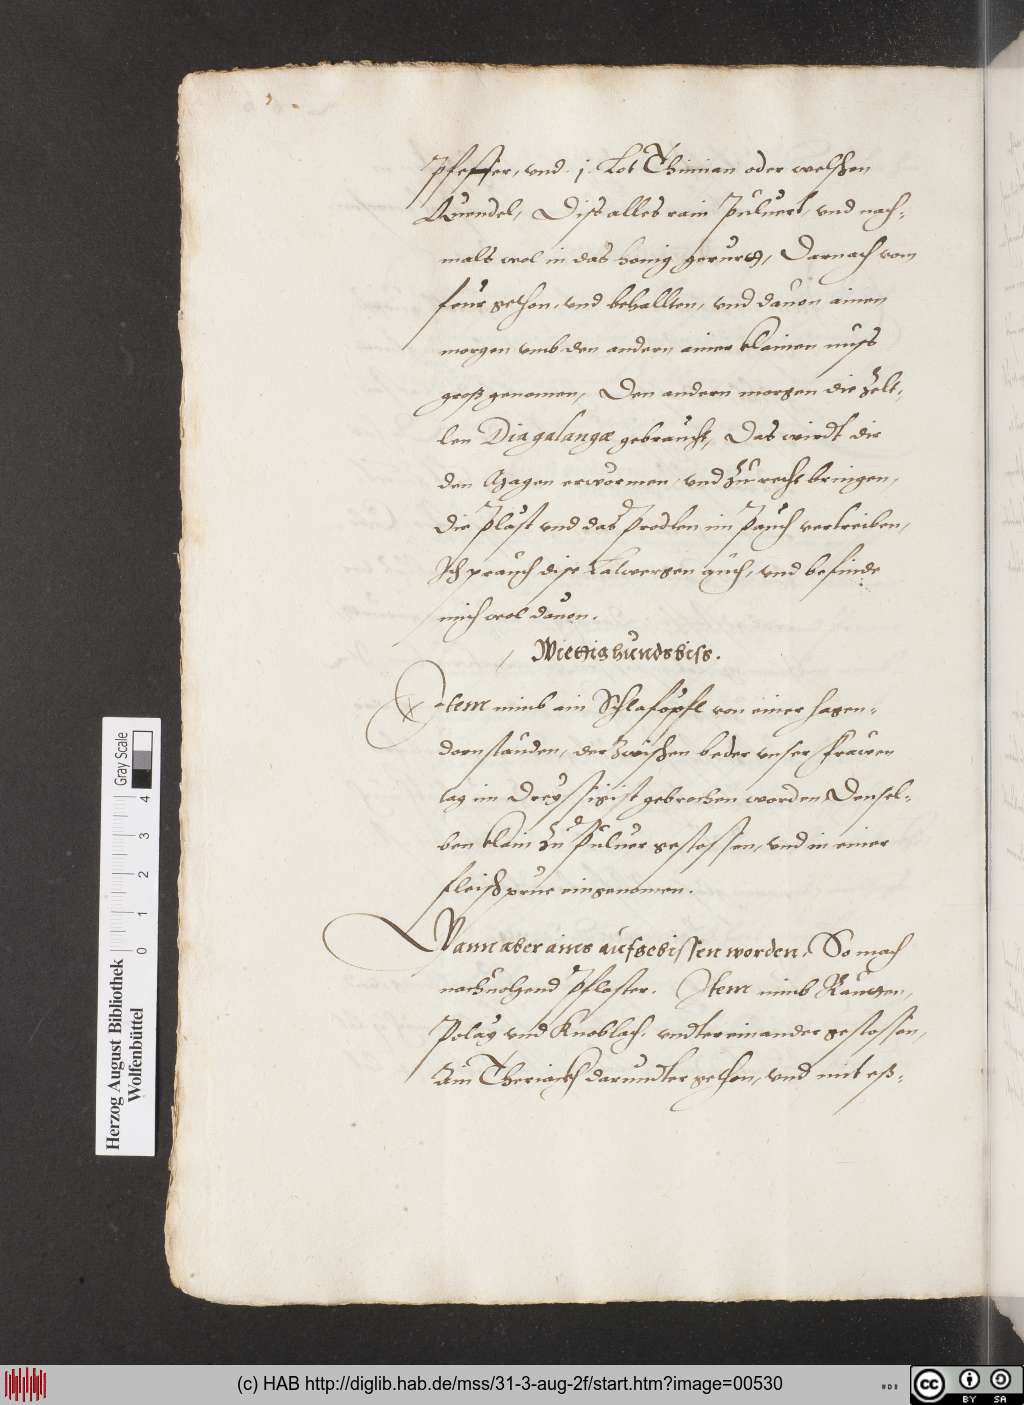 Pfeffer, vnd .j. Lot Thimian oder welschen
Quendel, Diss alles rain Puluert, vnd nach-
mals wol in das honig gerurt, Darnach vom
feur gethon, vnd behallten, vnd dauon ainen
morgen vmb den andern ainer klainen nuss
gross genomen, Den andern morgen die Zelt-
len Diagalangæ gebraucht, Das wirdt dir
den Magen erwörmen, vnd zu recht bringen,
die Pläst vnd das Prodlen im Pauch vertreiben,
Ich prauch dise Latwergen auch, vnd befinde
mich wol dauon.
Wiettig hundsbiss.
Item nimb ain Schlafopfl von einer hagen-
dornstauden, der zwischen beder vnser frawen
tag im Dreyssigist gebrochen worden, Densel-
ben klain zu Puluer gestossen, vnd in einer
fleischprue eingenomen.
Wann aber ains auf gebissen worden, So mach
nachuolgend Pflaster. Item nimb Rautten,
Polay vnd Knoblach, vndtereinander gestossen,
Ain Theriackh darundter gethon, vnd mit ess-
Herzog August Bibliothek
Wolfenbüttel
0 1 2 3 4
Gray Scale
(c) HAB http://diglib.hab.de/mss/31-3-aug-2f/start.htm?image=00530
cc BY SA